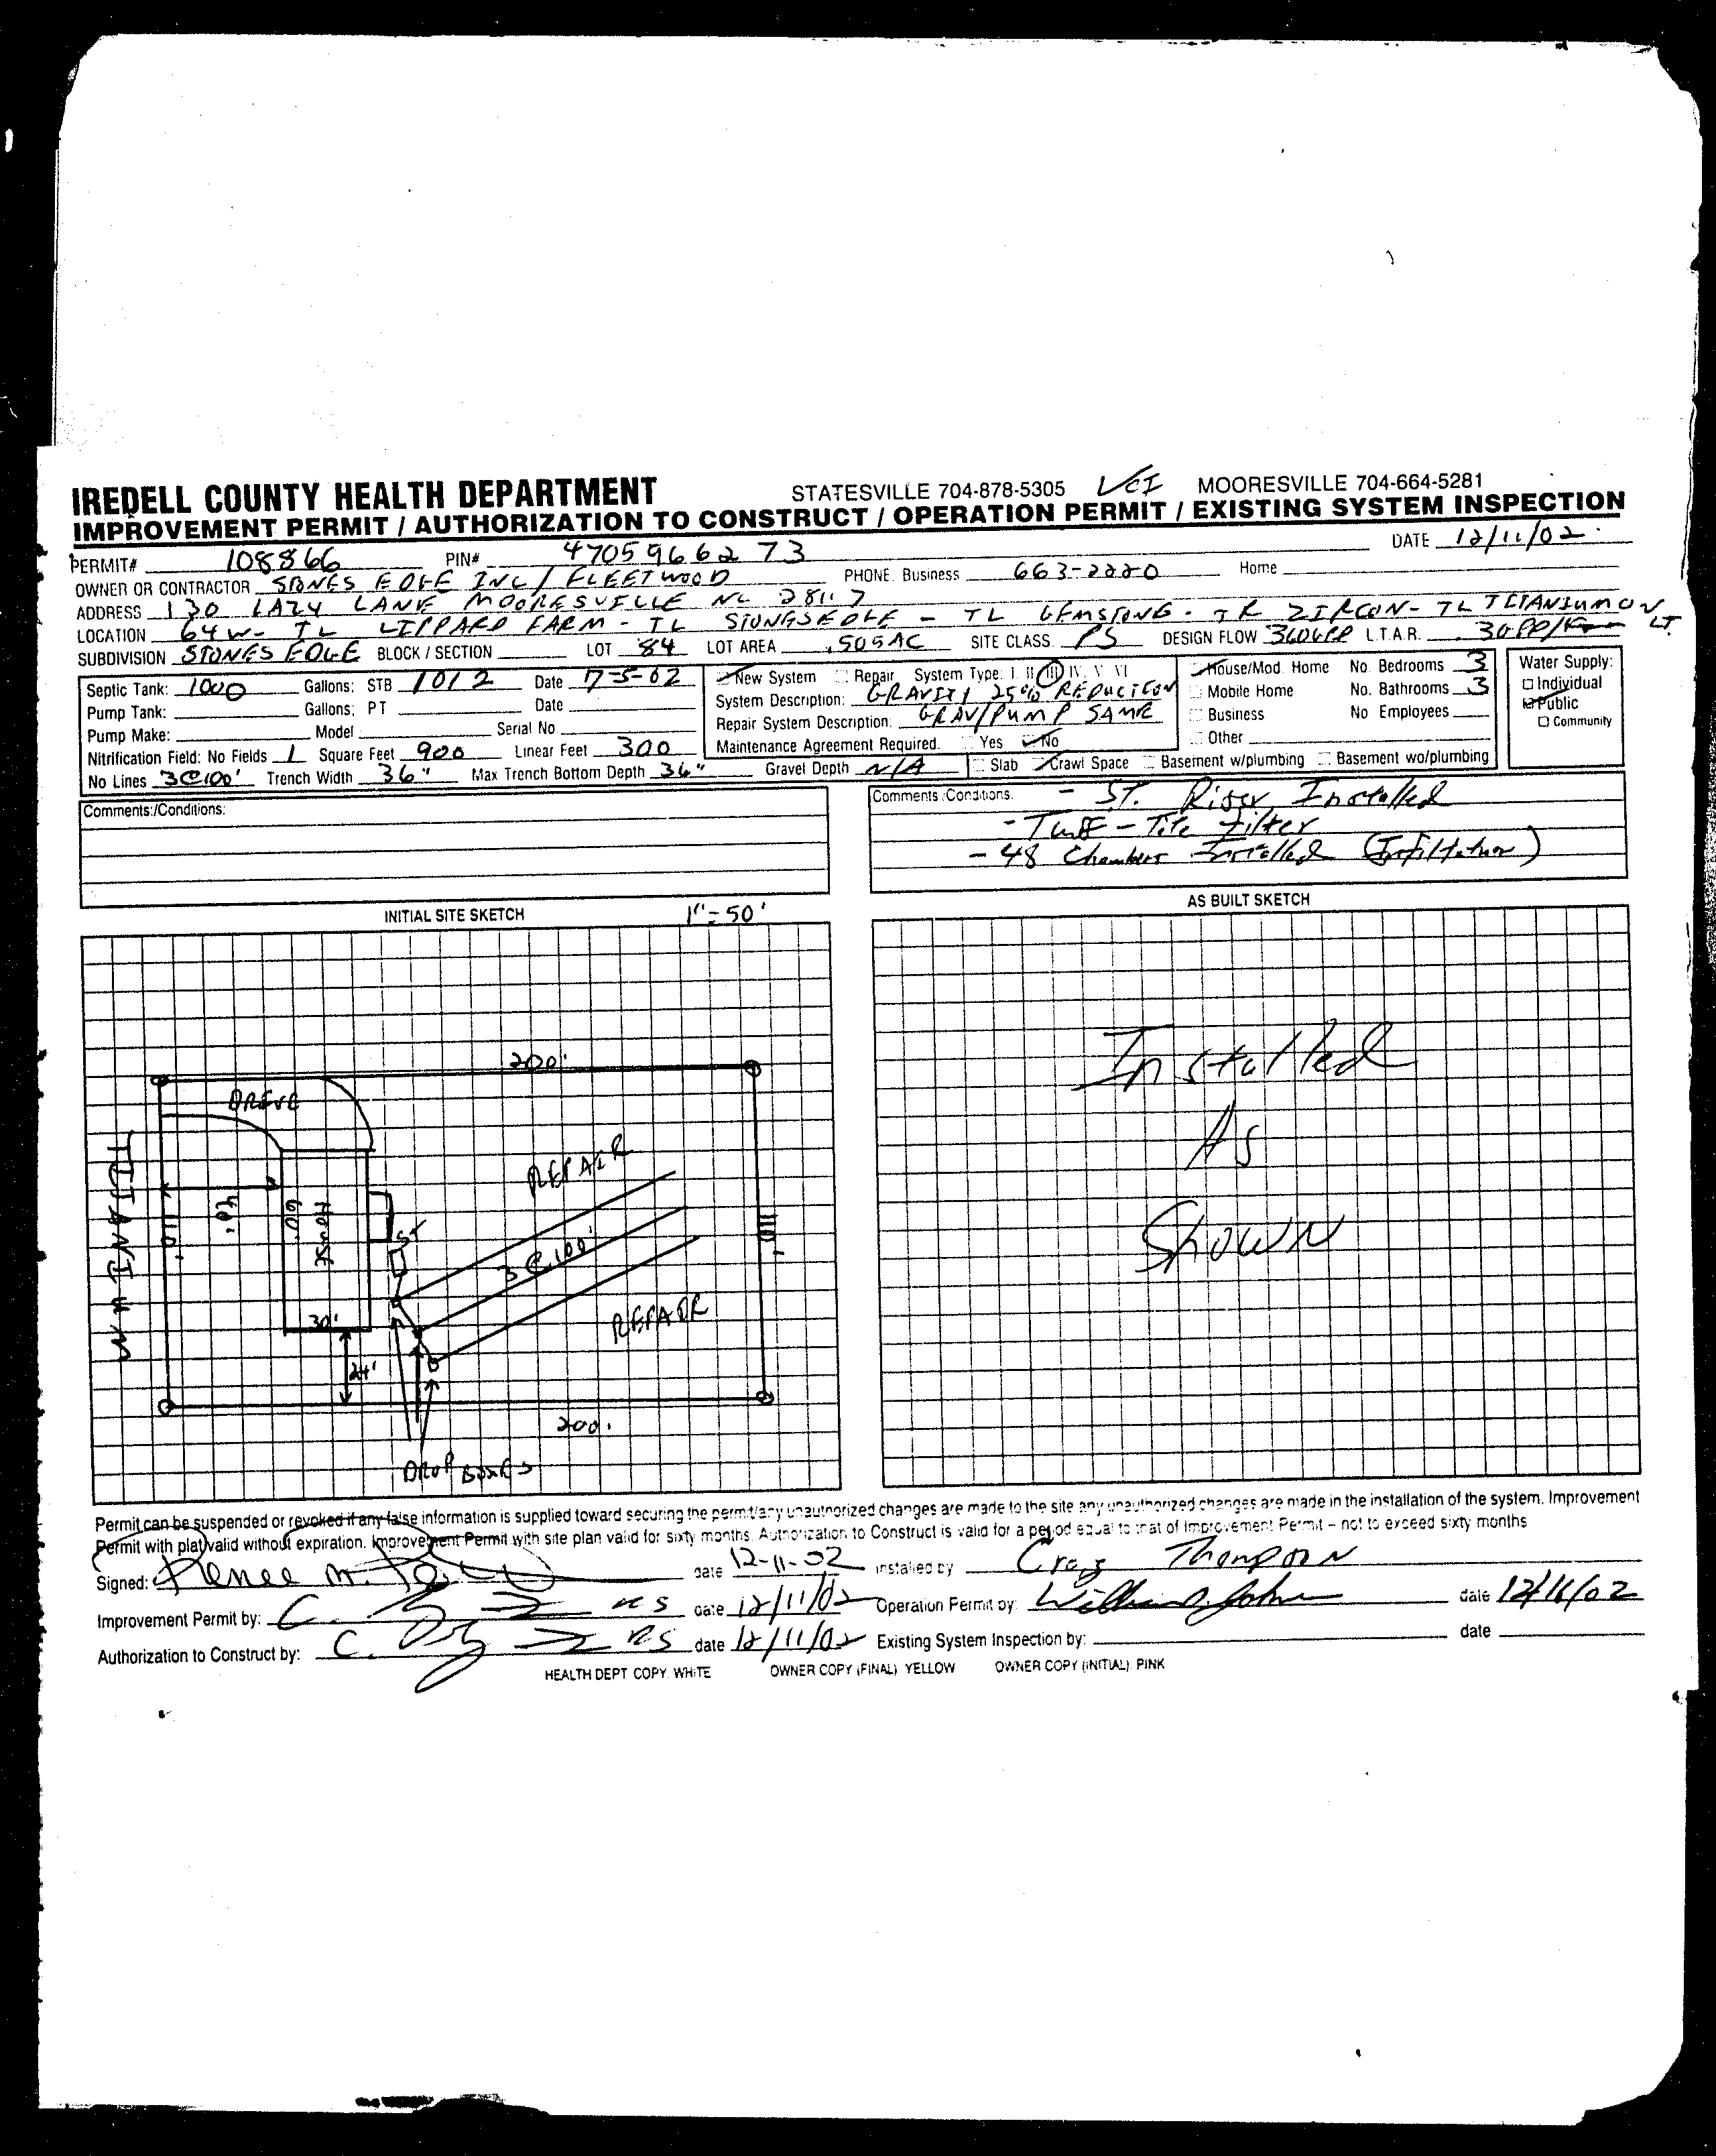 IREDELL COUNTY HEALTH DEPARTMENT STATESVILLE 704-878-5305 MOORESVILLE 704-664-5281
IMPROVEMENT PERMIT / AUTHORIZATION TO CONSTRUCT / OPERATION PERMIT / EXISTING SYSTEM INSPECTION
PERMIT# 108866 PIN# 4705966273 DATE 12/11/02
OWNER OR CONTRACTOR STONES EDGE INC / FLEETWOOD PHONE: Business 663-2220 Home
ADDRESS 130 LAZY LANE MOORESVILLE NC 28117
LOCATION 64 W - TL LIPPARD FARM - TL STONESEDGE - TL GEMSTONE - TR ZIRCON - TL TITANIUM ON LT
SUBDIVISION STONES EDGE BLOCK / SECTION LOT 84 LOT AREA .505AC SITE CLASS. PS DESIGN FLOW 360GPD L.T.A.R.
Septic Tank: 1000 Gallons: STB 1012 Date 7-5-02 New System Repair System Type: I II III IV V VI House/Mod. Home No. Bedrooms 3 Water Supply:
Pump Tank: Gallons: PT Date System Description: GRAVITY 25% REDUCTION Mobile Home No. Bathrooms 3 Individual
Pump Make: Model Serial No. Repair System Description: GRAV/PUMP SAME Business No Employees Public
Nitrification Field: No Fields 1 Square Feet 900 Linear Feet 300 Maintenance Agreement Required. Yes No Other Community
No Lines 3@100' Trench Width 36" Max Trench Bottom Depth 36" Gravel Depth N/A Slab Crawl Space Basement w/plumbing Basement wo/plumbing
Comments:/Conditions:
Comments:/Conditions. - ST. Riser Installed
- Tuff-Tite Filter
- 48 Chambers Installed (Infiltrator)
INITIAL SITE SKETCH 1"=50'
200'
DRIVE
REPAIR
TITANIUM
110'
40'
60'
HOUSE
ST
3@100'
110'
30'
REPAIR
24'
200'
DROP BOXES
AS BUILT SKETCH
Installed
As
Shown
Permit can be suspended or revoked if any false information is supplied toward securing the permit/any unauthorized changes are made to the site any unauthorized changes are made in the installation of the system. Improvement
Permit with plat valid without expiration. Improvement Permit with site plan valid for sixty months. Authorization to Construct is valid for a period equal to that of Improvement Permit - not to exceed sixty months
Signed: Renee M. date 12-11-02 installed by Craig Thompson
Improvement Permit by: C. RS date 12/11/02 Operation Permit by: date 12/16/02
Authorization to Construct by: C. RS date 12/11/02 Existing System Inspection by: date
HEALTH DEPT COPY. WHITE OWNER COPY (FINAL) YELLOW OWNER COPY (INITIAL) PINK